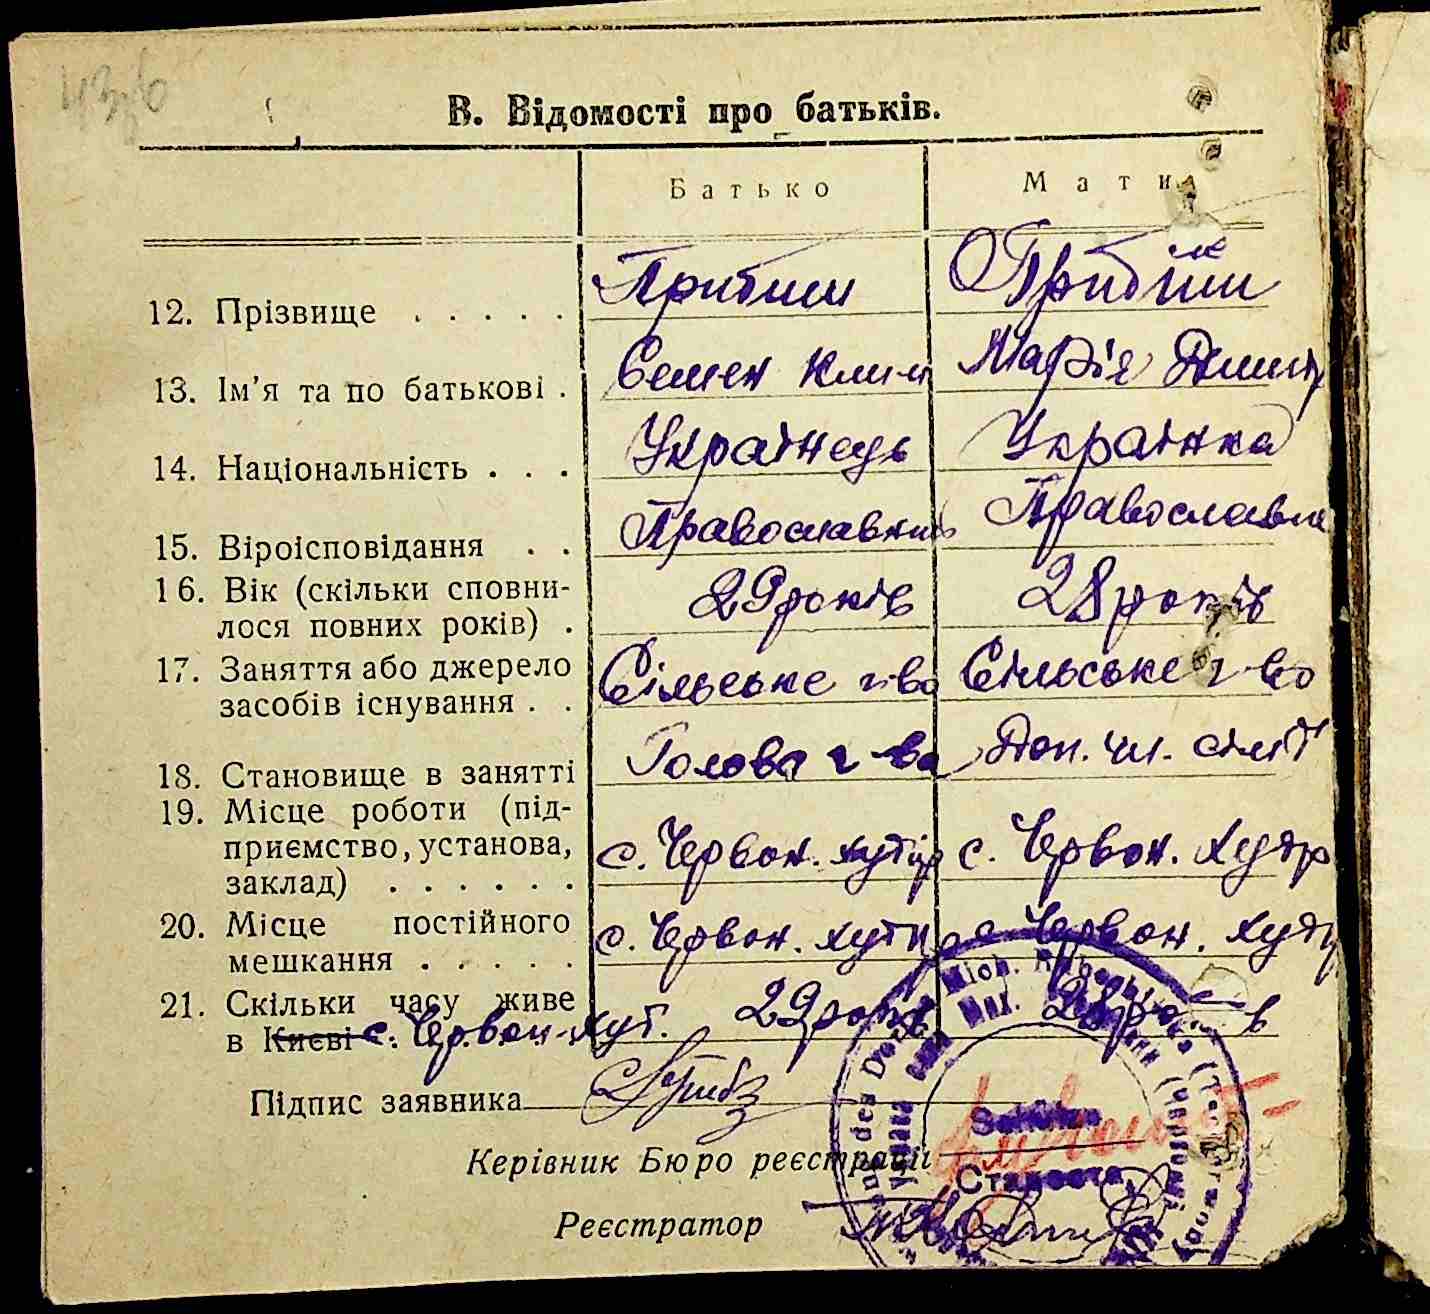 43
В. Відомості про батьків.
Батько Мати
12. Прізвище . . . . . Прибиш Прибіш
13. Ім'я та по батькові . Семен Клим Марія Дмит
14. Національність . . . Українець Українка
15. Віроісповідання . . Православний Православна
16. Вік (скільки сповни-
лося повних років) . 29 років 28 років
17. Заняття або джерело
засобів існування . . Сільське г-во Сільське г-во
18. Становище в занятті Голова г-ва Доп. чл. сім'ї
19. Місце роботи (під-
приємство, установа,
заклад) . . . . . . с. Червон. хутір с. Червон. Хутір
20. Місце постійного
мешкання . . . . . с. Червон. хутір с. Червон. хутір
21. Скільки часу живе
в Києві с. Червон. хут. 29 років 28 років
Підпис заявника
Керівник Бюро реєстрації
Реєстратор
des Do
Mich.
Schulze
Староста